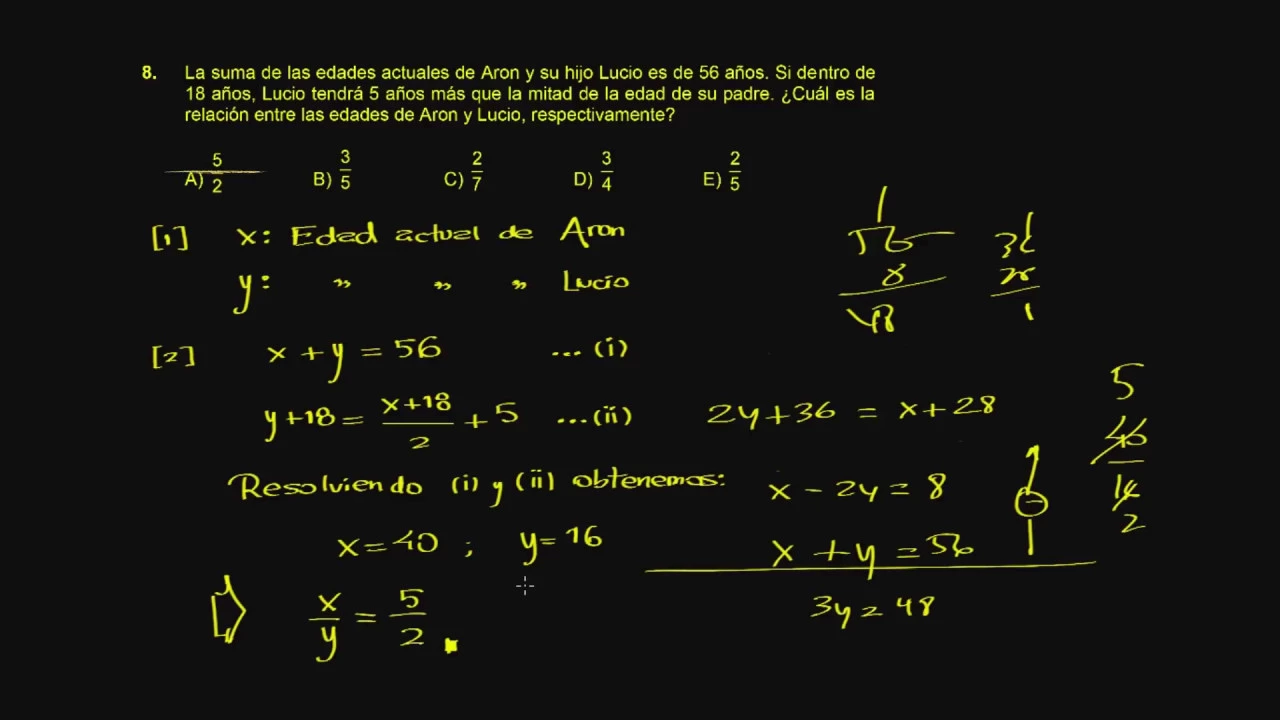 8. La suma de las edades actuales de Aron y su hijo Lucio es de 56 años. Si dentro de
18 años, Lucio tendrá 5 años más que la mitad de la edad de su padre. ¿Cuál es la
relación entre las edades de Aron y Lucio, respectivamente?
A) 5/2 B) 3/5 C) 2/7 D) 3/4 E) 2/5
[1] x: Edad actual de Aron
y: " " " Lucio
[2] x + y = 56 ... (i)
y+18 = (x+18)/2 + 5 ... (ii)
Resolviendo (i) y (ii) obtenemos:
x = 40 ; y = 16
x/y = 5/2
2y+36 = x+28
x - 2y = 8
x + y = 56
3y = 48
56
8
48
5
2